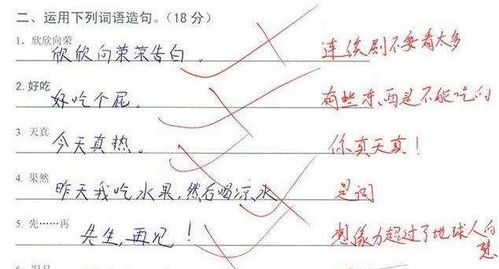 二、运用下列词语造句。（18 分）
1. 欣欣向荣
欣欣向荣荣告白。 连续剧不要看太多
2. 好吃
好吃个屁。 有些东西是不能吃的
3. 天真
今天真热。 你真天真！
4. 果然
昨天我吃水果，然后喝凉水 是词
5. 先……再
先生，再见！ 想像力超过了地球人的想